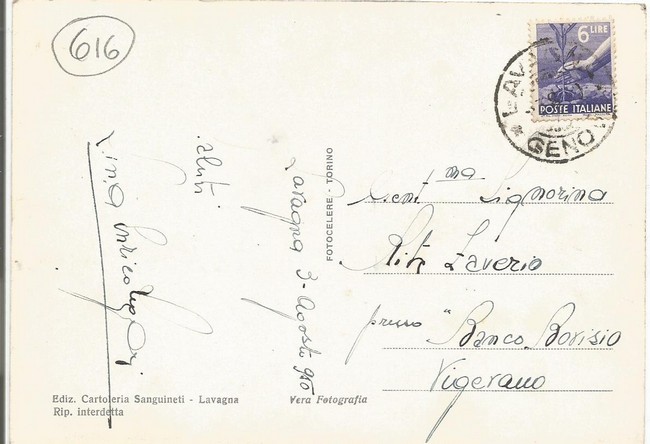 616
6 LIRE
POSTE ITALIANE
LAVAGNA
* GENOVA
Saluti
Lavagna 3-Agosto 950
FOTOCELERE - TORINO
Gent.ma Signorina
Rita Zaverio
presso "Banco Borisio
Vigevano
Ediz. Cartoleria Sanguineti - Lavagna
Rip. interdetta
Vera Fotografia